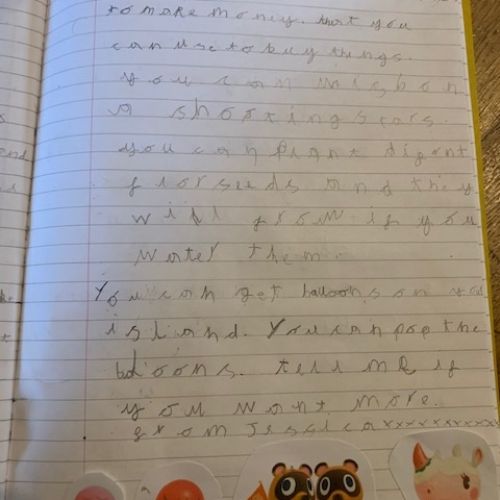 to make money. that you
can use to buy things.
you can wish on
a shooting stars.
you can plant digent
florseeds and they
will grow if you
water them.
You can get balloons on you
island. You can pop the
baloons. tell me if
you want more.
from Jessica xxxxxxxxxx